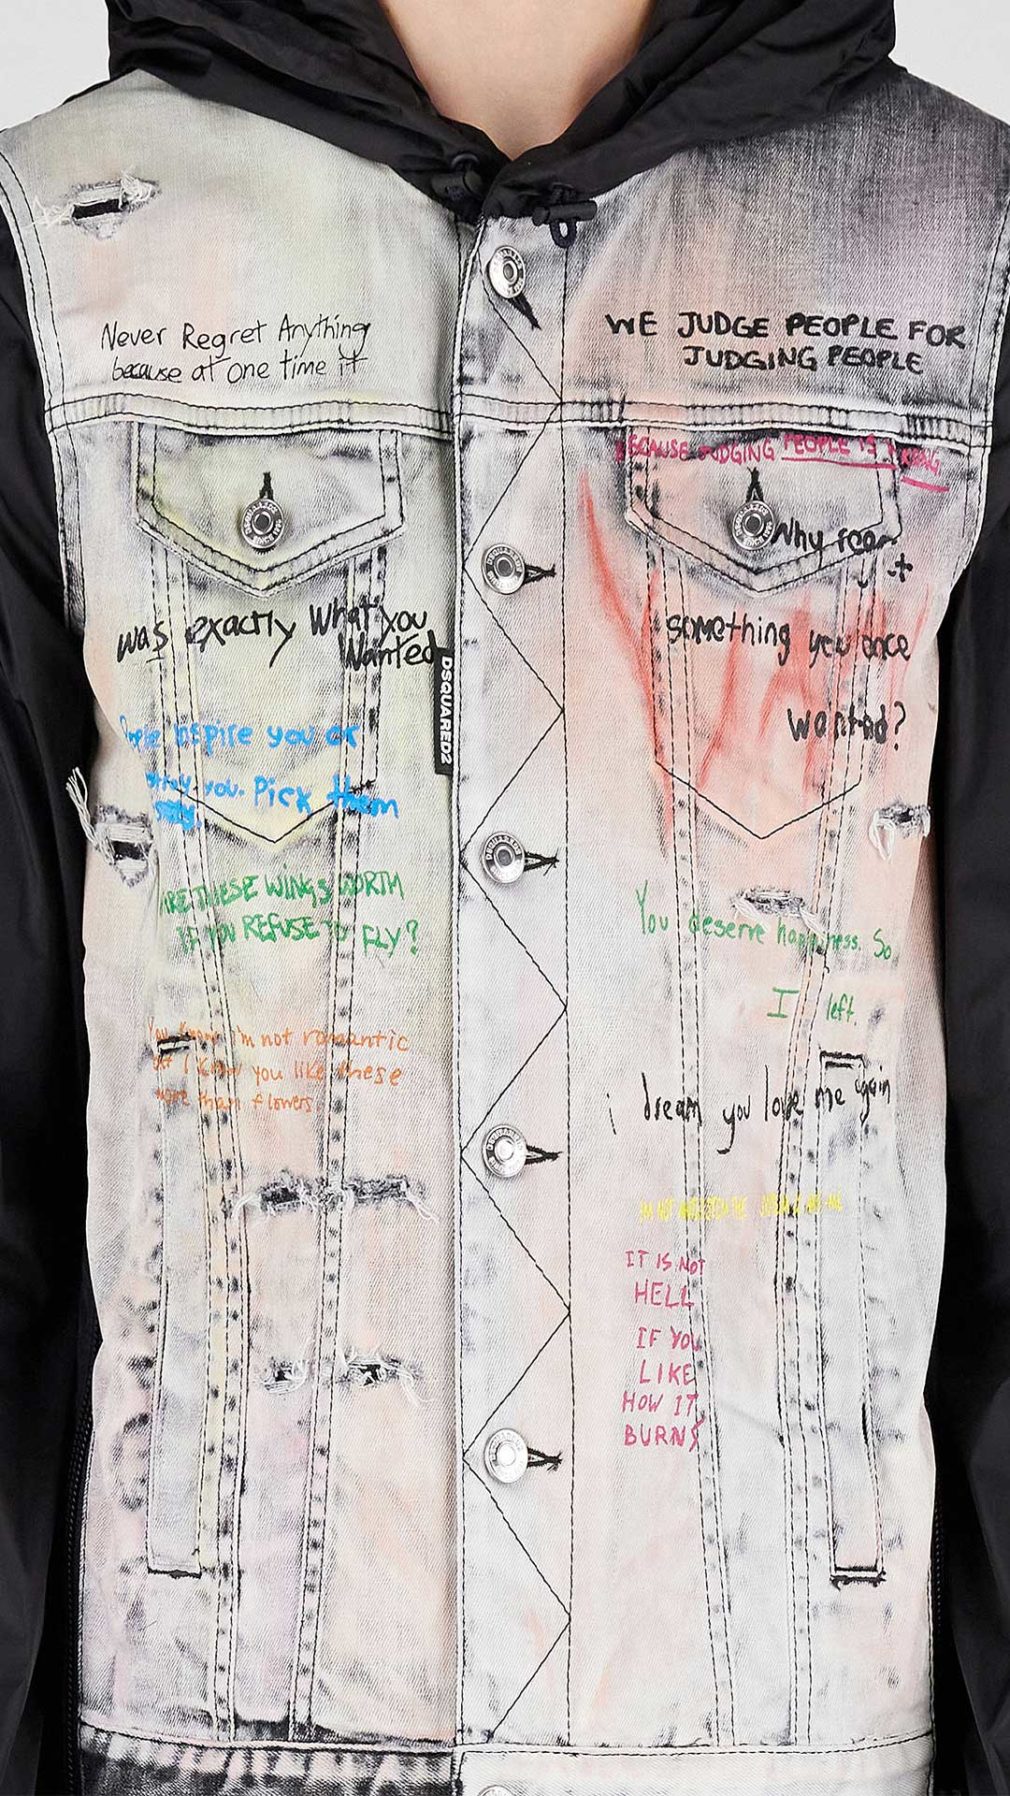 Never Regret Anything
because at one time it
was exactly What you
Wanted
DSQUARED2
People inspire you or
you. Pick them
ARE THESE WINGS WORTH
IF YOU REFUSE TO FLY?
You know i'm not romantic
but I know you like these
more than flowers.
WE JUDGE PEOPLE FOR
JUDGING PEOPLE
BECAUSE JUDGING PEOPLE IS
Why
something you once
wanted?
You deserve happiness. So
I left.
i dream you love me again
IT IS NOT
HELL
IF YOU
LIKE
HOW IT
BURNS